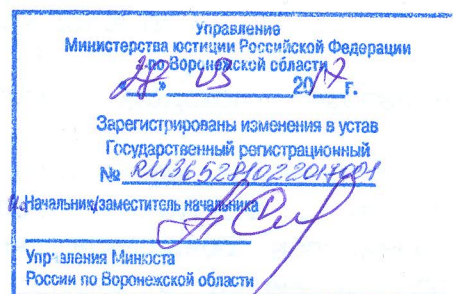 Управление
Министерства юстиции Российской Федерации
по Воронежской области
« » 03 2017 г.
Зарегистрированы изменения в устав
Государственный регистрационный
№ RU365281022017001
Начальник/заместитель начальника
Управления Минюста
России по Воронежской области